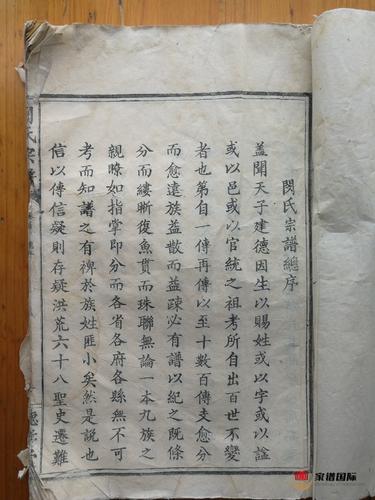 閔氏宗譜總序
蓋聞天子建德因生以賜姓或以字或以諡
或以邑或以官統之祖考所自出百世不變
者也第自一傳再傳以至十數百傳支愈分
而愈遠族益散而益疎必有譜以紀之既條
分而縷晰復魚貫而珠聯無論一本九族之
親瞭如指掌即分而各省各府各縣無不可
考而知譜之有裨於族姓匪小矣然是說也
信以傳信疑則存疑洪荒六十八聖史遷難
家谱国际